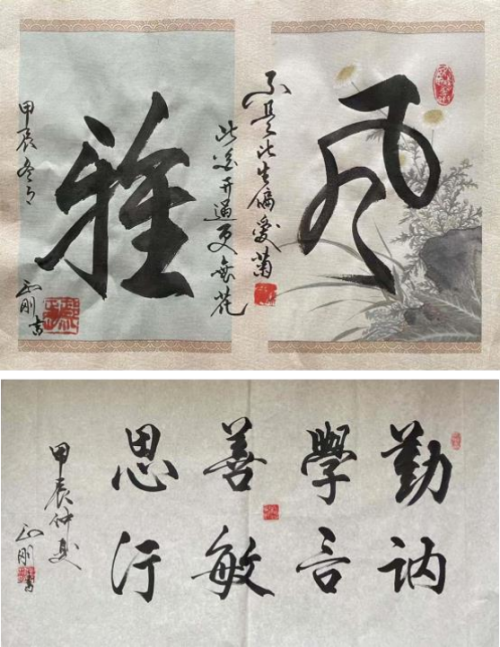 风
不是此生偏愛菊
此花开過更無花
雅
甲辰冬月
正刚书
勤學善思
讷言敏行
甲辰仲夏
正刚书